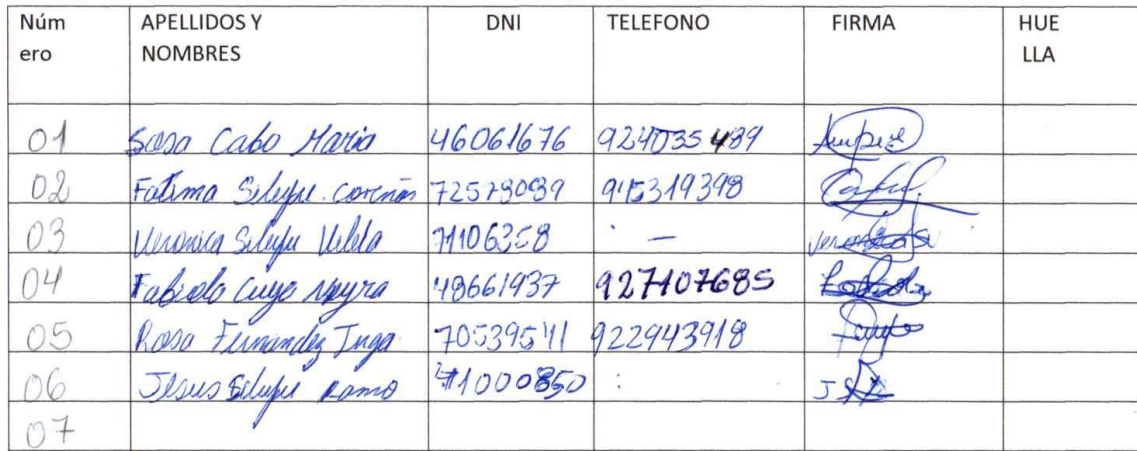 Núm APELLIDOS Y DNI TELEFONO FIRMA HUE
ero NOMBRES LLA
01 Sosa Cabo Maria 46061676 924035489
02 Fatima Silupu 72579089 945319398
03 Veronica Silupu Vilela 71106358 -
04 Fabiola Cuyo Mayra 48661937 927107685
05 Rosa Fernandez Inga 70539541 922943918
06 Jesus Silupu Ramo 71000850 :
07